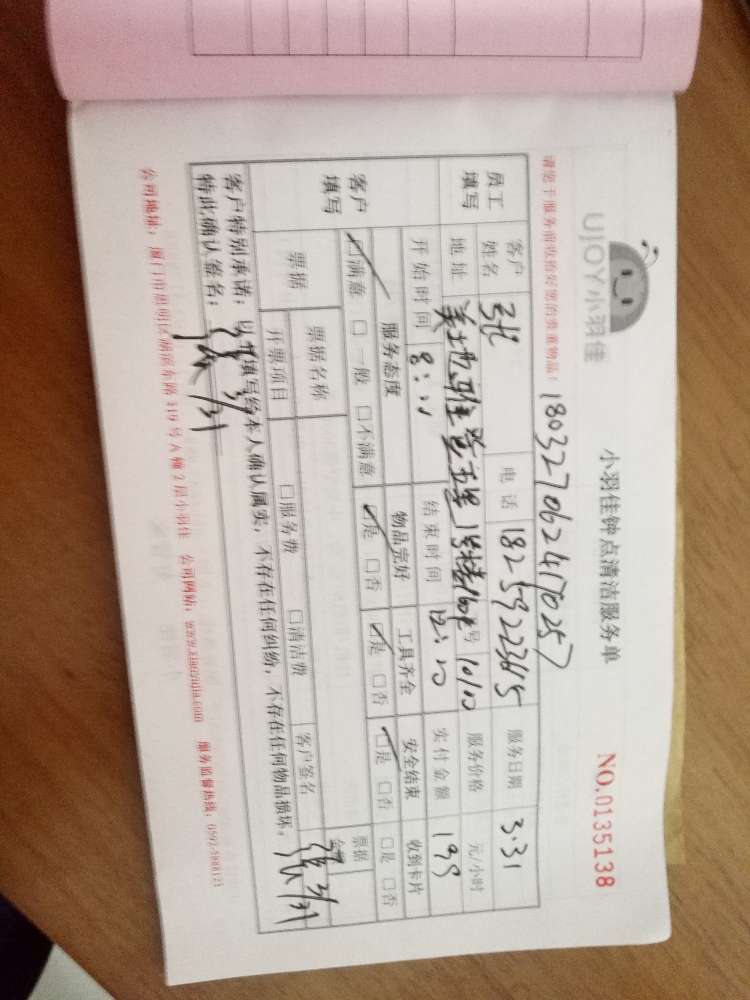 UJOY小羽佳
小羽佳钟点清洁服务单
NO.0135138
请您于服务前收拾好您的贵重物品！
1803270624170257
员工填写
客户姓名 张 电话 18259223615 服务日期 3.31
地址 号 服务价格 元/小时
开始时间 8:00 结束时间 12:00 实付金额 199
客户填写
服务态度 物品完好 工具齐全 安全结束 收到卡片
☑满意 □一般 □不满意 ☑是 □否 ☑是 □否 ☑是 □否 □是 □否
票据 票据名称 票据
开票项目 □服务费 □清洁费 客户签名 3/31
客户特别承诺：以上填写经本人确认属实，不存在任何纠纷，不存在任何物品损坏，
特此确认签名： 3/31
公司地址：厦门市思明区湖滨东路319号A幢2层小羽佳 公司网站：www.xiaoyujia.com 服务监督热线：0592-5888123